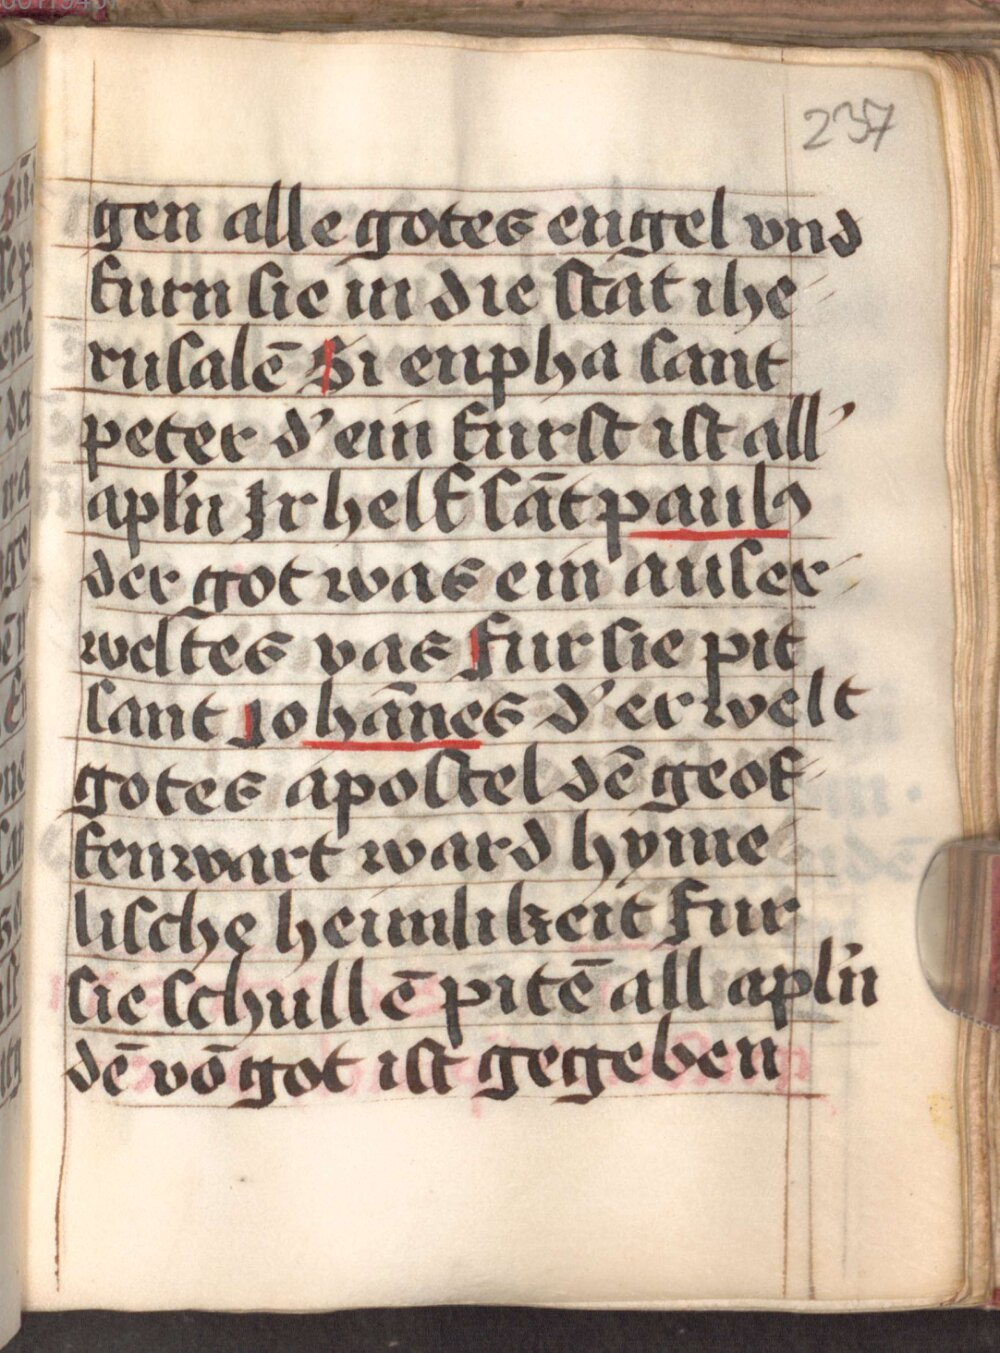 237
gen alle gotes engel vnd
furn sie in die stat ihe
rusalē Si enpha sant
peter d' ein furst ist all'
apl'n Ir helf sāt pauls
der got was ein auser
weltes vas fur sie pit
sant Johānes d' erwelt
gotes apostel dē geof
fenwart ward hyme
lische heimlikeit fur
sie schullē pitē all apl'n
dē vō got ist gegeben